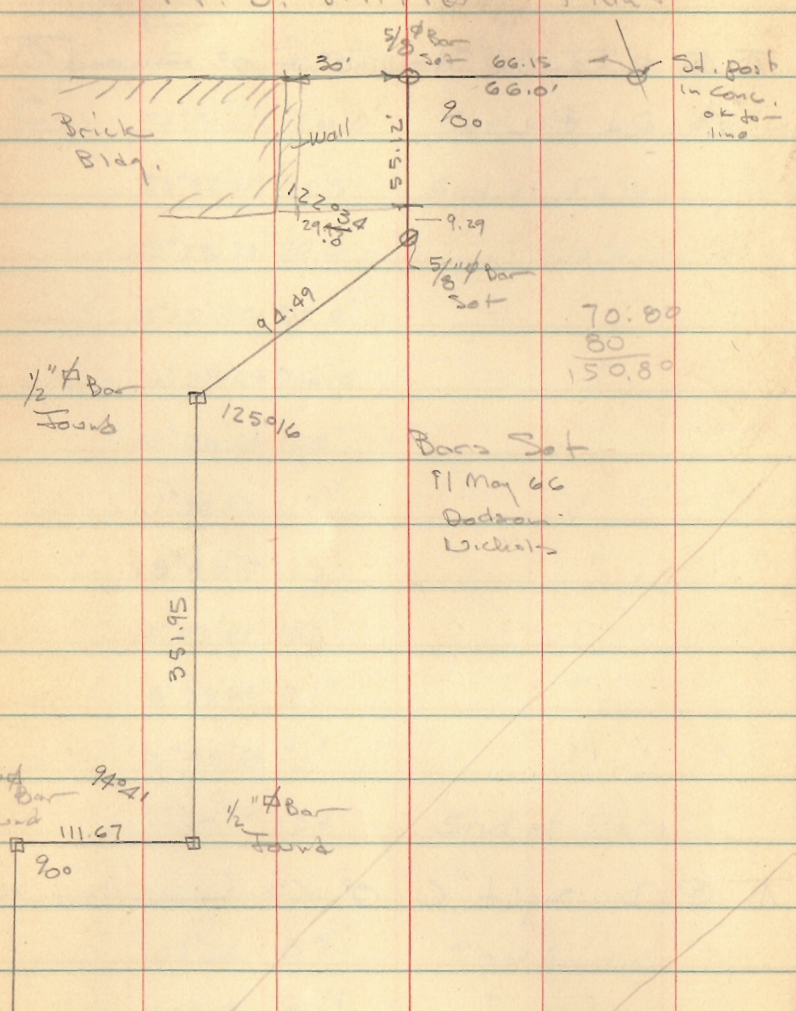 5/8" ⌀ Bar
Set
30'
66.15
66.0'
St. post
in conc.
ok for
line
90°
Brick
Bldg.
Wall
55.12'
122°34
29.
9.29
5/8" ⌀ Bar
Set
94.49
70.80
80
150.80
1/2" ⌀ Bar
Found
125°16
Bars Set
11 May 66
Dodson
Nichols
351.95
94°41
Bar
1/2" ⌀ Bar
Found
111.67
90°